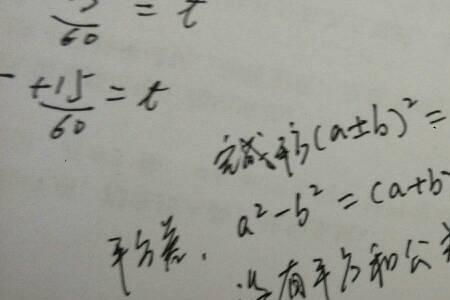 /60 = t
+15/60 = t
完成平方(a±b)² =
平方差. a²-b² = (a+b
没有平方和公